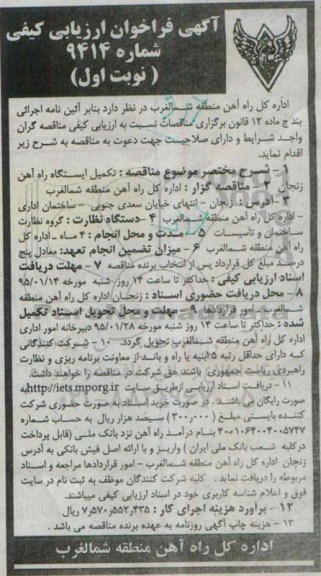 آگهی فراخوان ارزیابی کیفی
شماره ۹۴۱۴
( نوبت اول )
اداره کل راه آهن منطقه شمالغرب در نظر دارد بنابر آئین نامه اجرائی
بند ج ماده ۱۲ قانون برگزاری مناقصات نسبت به ارزیابی کیفی مناقصه گران
واجد شرایط و دارای صلاحیت جهت دعوت به مناقصه به شرح زیر
اقدام نماید.
۱- شرح مختصر موضوع مناقصه : تکمیل ایستگاه راه آهن
زنجان ۲- مناقصه گزار : اداره کل راه آهن منطقه شمالغرب
۳- آدرس : زنجان - انتهای خیابان سعدی جنوبی - ساختمان اداری
اداره کل راه آهن منطقه شمالغرب ۴- دستگاه نظارت : گروه نظارت
ساختمان و تأسیسات ۵- مدت و محل انجام : ۴ ماه - اداره کل
راه آهن منطقه شمالغرب ۶- میزان تضمین انجام تعهد: معادل پنج
درصد مبلغ کل قرارداد پس از انتخاب برنده مناقصه ۷- مهلت دریافت
اسناد ارزیابی کیفی : حداکثر تا ساعت ۱۴ روز شنبه مورخه ۹۵/۰۱/۱۴
۸- محل دریافت حضوری اسناد : زنجان- اداره کل راه آهن منطقه
شمالغرب - امور قراردادها ۹- مهلت و محل تحویل اسناد تکمیل
شده : حداکثر تا ساعت ۱۴ روز شنبه مورخه ۹۵/۰۱/۲۸ دبیرخانه امور اداری
اداره کل راه آهن منطقه شمالغرب تحویل گردد. ۱۰- شرکت کنندگانی
که دارای حداقل رتبه ۵ ابنیه یا راه و باند از معاونت برنامه ریزی و نظارت
راهبردی ریاست جمهوری باشند حق شرکت در مناقصه را خواهند داشت.
۱۱- دریافت اسناد ارزیابی ازطریق سایت http://iets.mporg.ir به
صورت رایگان می باشد. در صورت خرید اسناد به صورت حضوری شرکت
کننده بایستی مبلغ (۳۰۰,۰۰۰) سیصد هزار ریال به حساب شماره
۴۰۰۱۰۶۴۰۰۴۰۰۵۷۴۷ بنام درآمد راه آهن نزد بانک ملی (قابل پرداخت
درکلیه شعب بانک ملی ایران ) واریز و با ارائه اصل فیش بانکی به آدرس
زنجان اداره کل راه آهن منطقه شمالغرب - امور قراردادها مراجعه و اسناد
مربوطه را دریافت نماید . کلیه شرکت کنندگان موظف به ثبت نام در سایت
فوق و اعلام شناسه کاربری خود در اسناد ارزیابی کیفی میباشند.
۱۲- برآورد هزینه اجرای کار : ۷,۵۷۰,۵۵۲,۴۳۵ ریال
۱۳- هزینه چاپ آگهی روزنامه به عهده برنده مناقصه می باشد .
اداره کل راه آهن منطقه شمالغرب